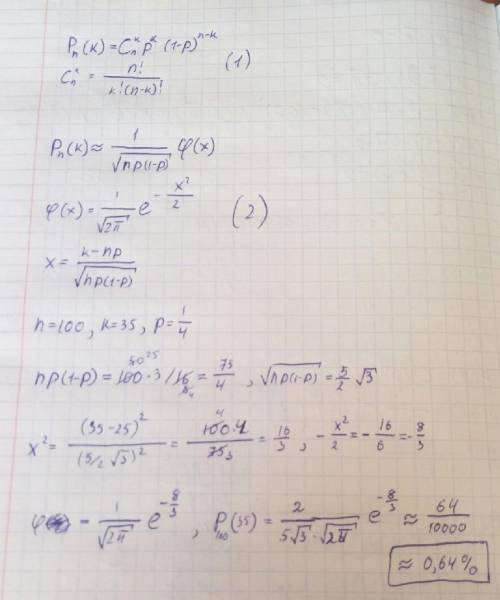 Pₙ(k) = Cₙᵏ pᵏ (1-p)ⁿ⁻ᵏ
Cₙᵏ = n! / k!(n-k)! (1)
Pₙ(k) ≈ 1/√(np(1-p)) φ(x)
φ(x) = 1/√(2π) e^(-x²/2) (2)
x = (k-np)/√(np(1-p))
n=100, k=35, p=1/4
np(1-p) = 100·3/16 = 75/4, √(np(1-p)) = 5/2 √3
x² = (35-25)²/(5/2 √3)² = 100·4/75 = 16/3, -x²/2 = -16/6 = -8/3
φ = 1/√(2π) e^(-8/3), P₁₀₀(35) = 2/(5√3·√(2π)) e^(-8/3) ≈ 64/10000
≈ 0,64%